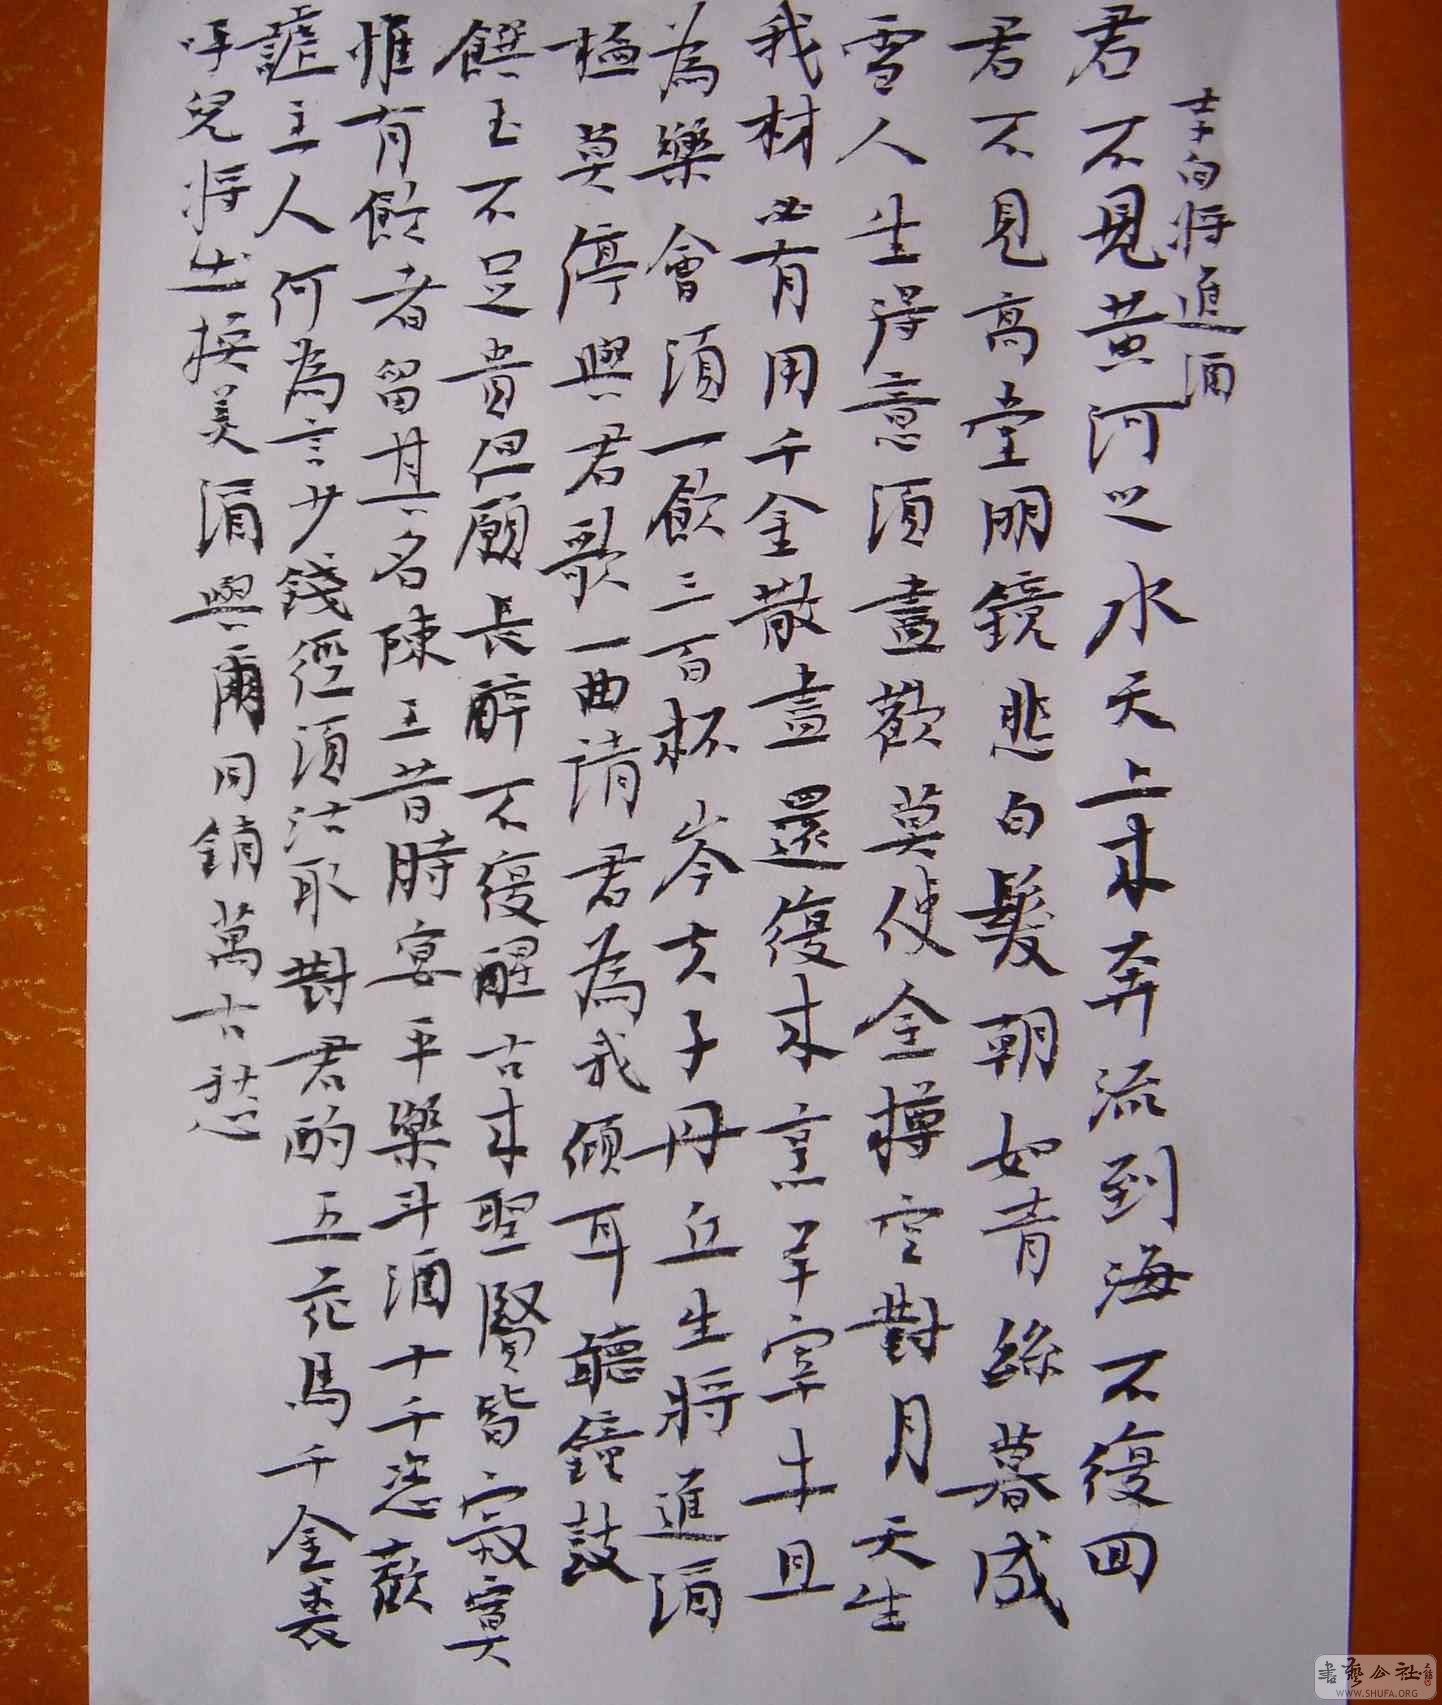 李白将進酒
君不見黄河之水天上来奔流到海不復回
君不見高堂明鏡悲白髮朝如青絲暮成
雪人生得意須盡歡莫使金樽空對月天生
我材必有用千金散盡還復来烹羊宰牛且
為樂會須一飲三百杯岑夫子丹丘生將進酒
莫停與君歌一曲請君為我傾耳聽鐘鼓
饌玉不足貴但願長醉不復醒古来聖賢皆寂寞
惟有飲者留其名陳王昔時宴平樂斗酒十千恣歡
謔主人何為言少錢徑須沽取對君酌五花馬千金裘
呼兒将出换美酒與爾同銷萬古愁
書藝公社
WWW.SHUFA.ORG